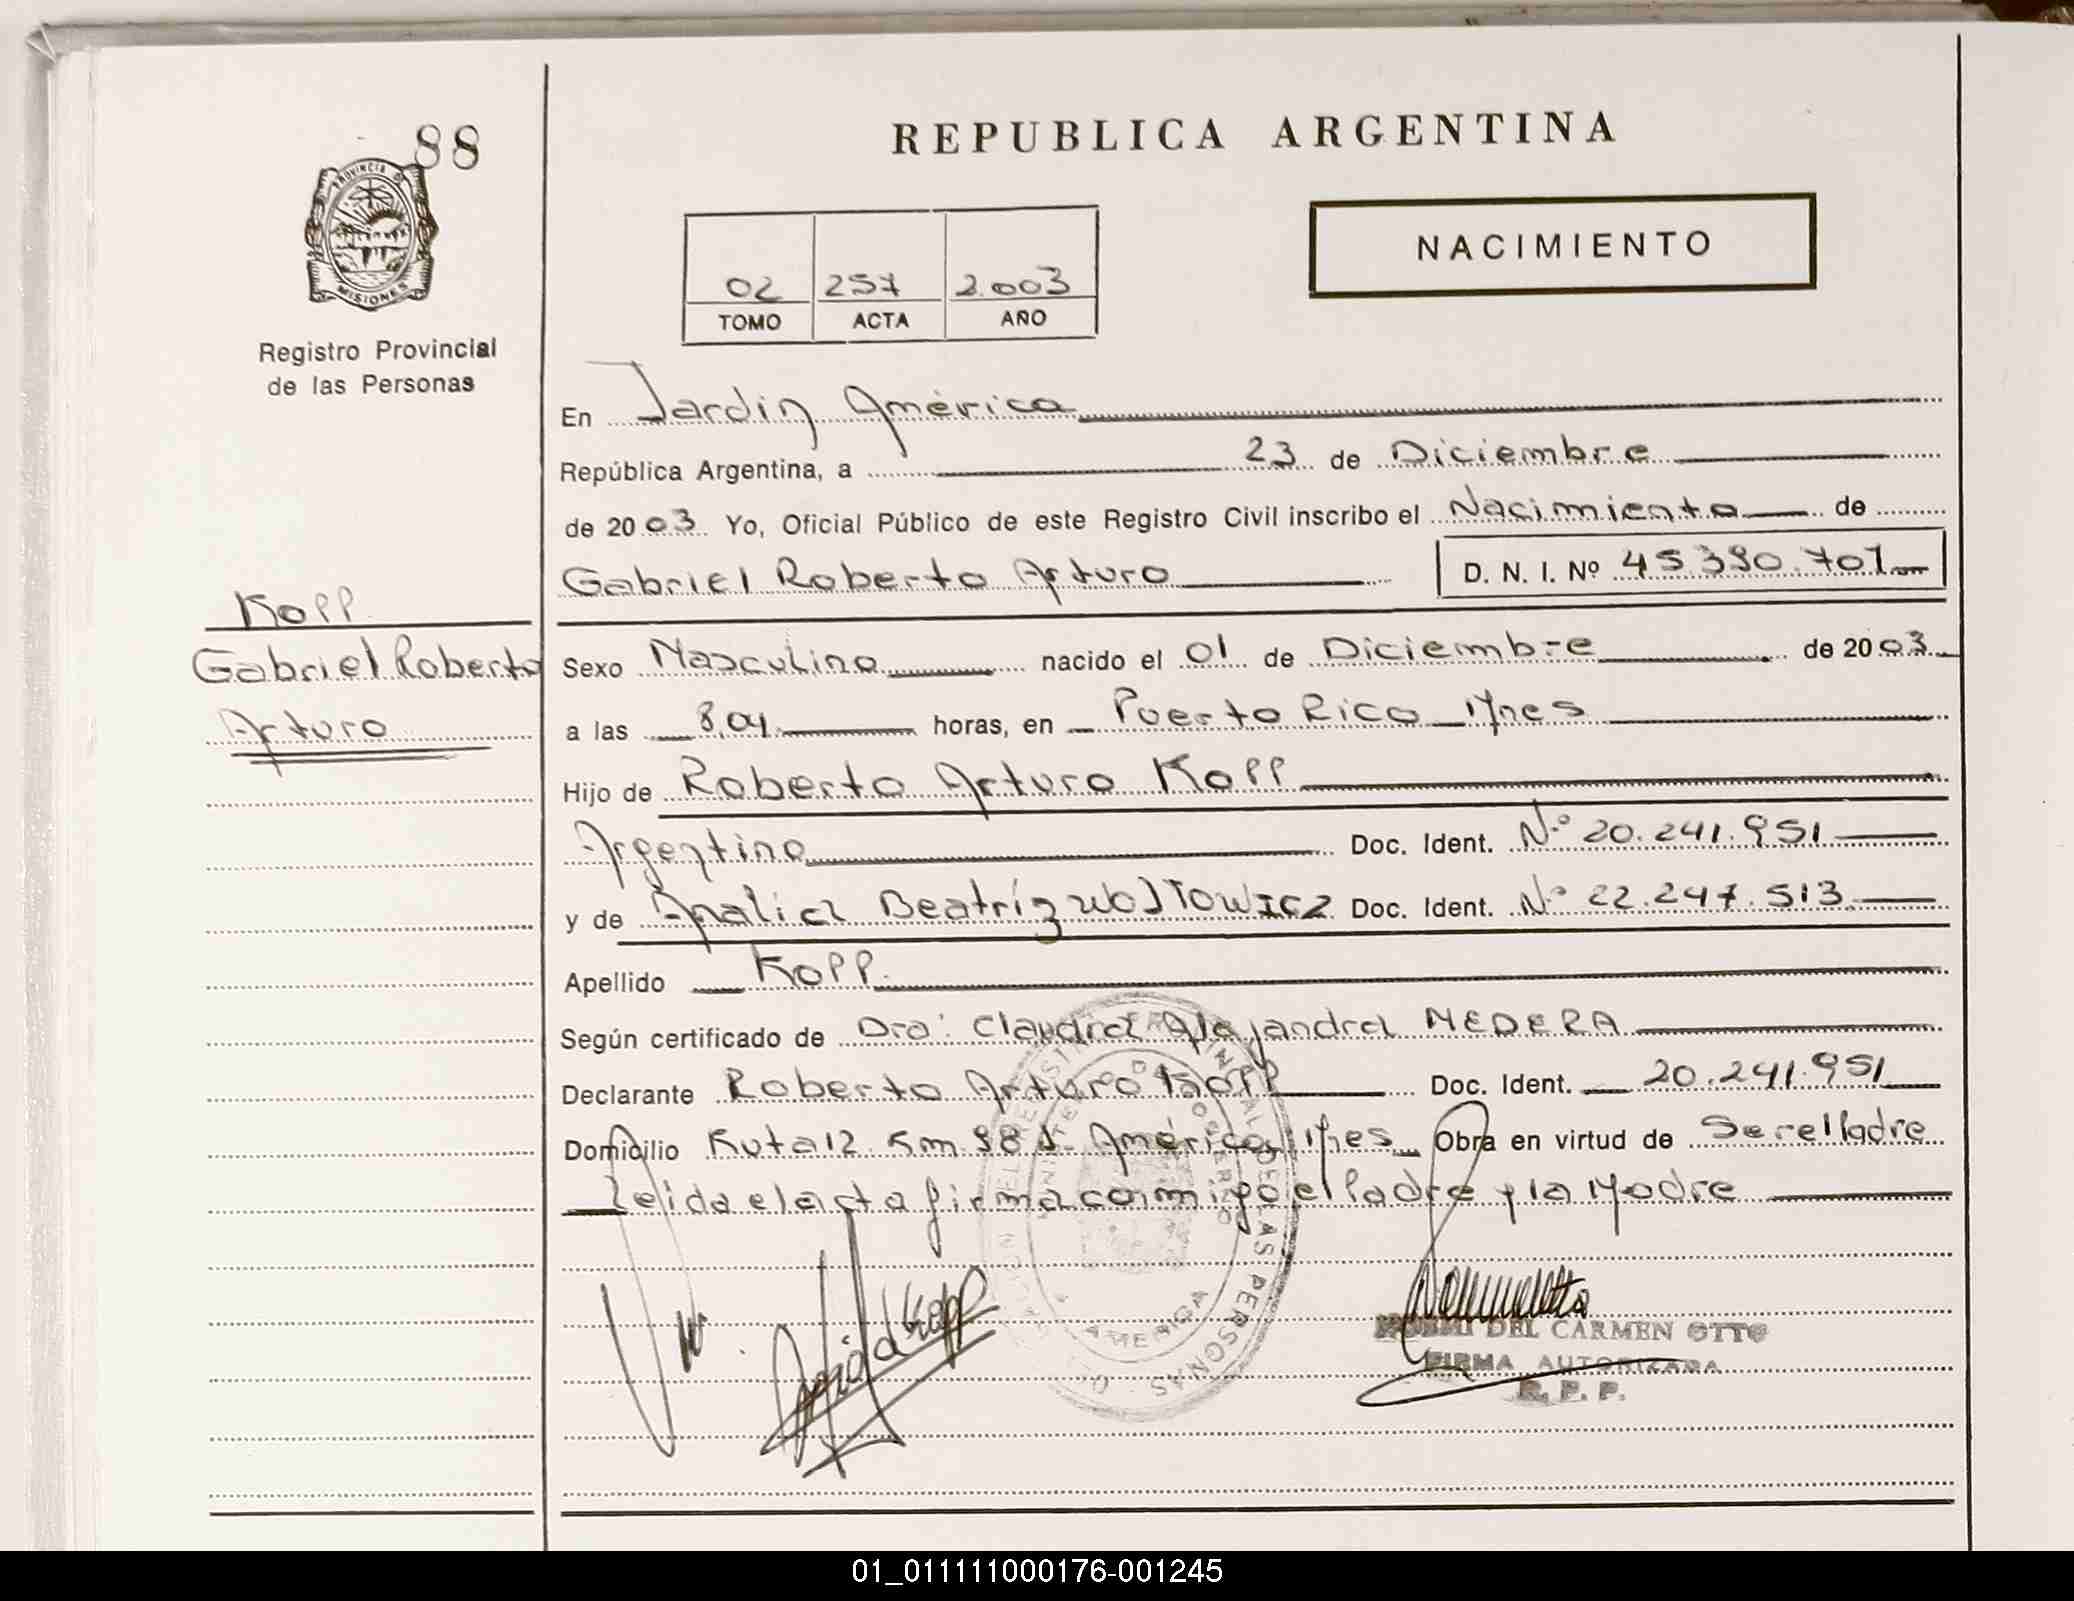 88
PROVINCIA DE
MISIONES
Registro Provincial
de las Personas
Kopp
Gabriel Roberto
Arturo
REPUBLICA ARGENTINA
NACIMIENTO
02 257 2.003
TOMO ACTA AÑO
En Jardin América
República Argentina, a 23 de Diciembre
de 2003 Yo, Oficial Público de este Registro Civil inscribo el Nacimiento de
Gabriel Roberto Arturo D. N. I. Nº 45.390.707
Sexo Masculino nacido el 01 de Diciembre de 2003
a las 8,04 horas, en Puerto Rico Mnes
Hijo de Roberto Arturo Kopp
Argentino Doc. Ident. Nº 20.241.951
y de Analia Beatríz WOJTOWICZ Doc. Ident. Nº 22.247.513
Apellido Kopp
Según certificado de Dra: Claudia Alejandra MEDERA
Declarante Roberto Arturo Kopp Doc. Ident. 20.241.951
Domicilio Ruta 12 Km 98 J. América Mnes Obra en virtud de Ser el Padre
Leida el acta firma conmigo el Padre y la Madre
DEL CARMEN OTTO
FIRMA AUTORIZADA
R. P. P.
01_011111000176-001245